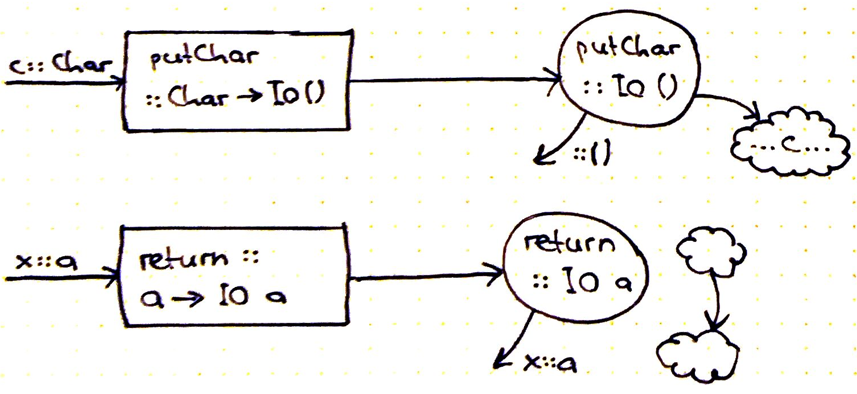 c::Char
putChar
::Char→IO()
putChar
::IO()
::()
...c...
x::a
return ::
a→ IO a
return
:: IO a
x::a